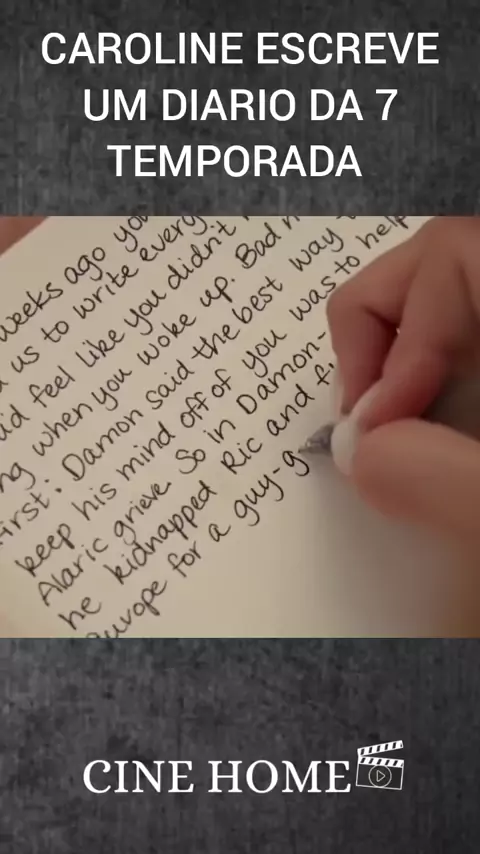 CAROLINE ESCREVE
UM DIARIO DA 7
TEMPORADA
weeks ago
us to write every
feel like you didn't
when you woke up. Bad
first: Damon said the best way
keep his mind off of you was to help
Alaric grieve. So in Damon-
he kidnapped Ric and
Europe for a guy-g
CINE HOME